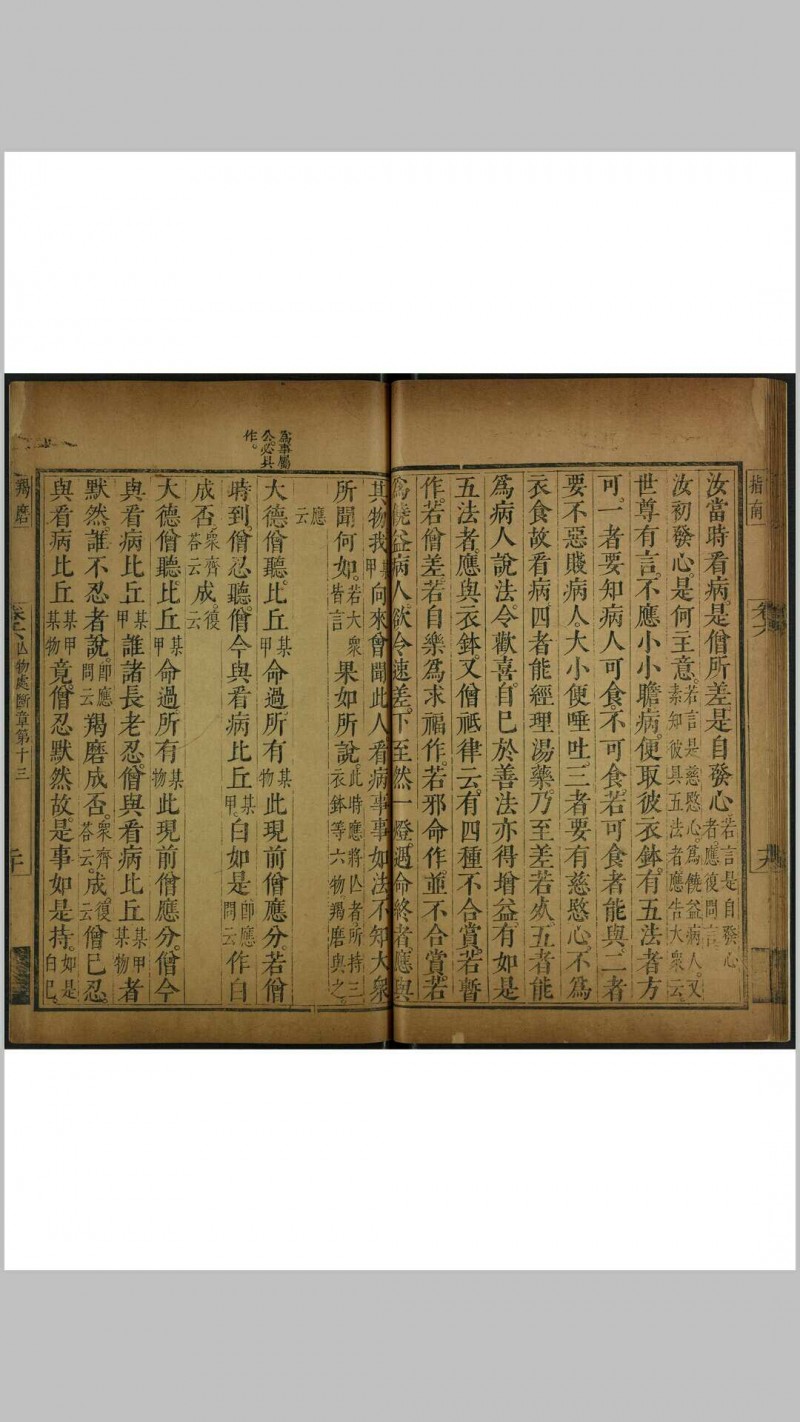 指南
汝當時看病。是僧所差是自發心若言是自發心者應復問言
汝初發心。是何主意。若言是慈愍心為饒益病人。又素知彼具五法者應告大衆云
世尊有言。不應小小瞻病。便取彼衣鉢。有五法者方
可。一者要知病人可食。不可食。若可食者能與。二者
要不惡賤病人。大小便唾吐。三者要有慈愍心。不為
衣食故看病四者能經理湯藥。乃至差若𣦸。五者能
為病人說法。令歡喜。自已於善法亦得增益。有如是
五法者。應與衣鉢。又僧祇律云。有四種不合賞。若暫
作。若僧差若自樂為求福作。若邪命作並不合賞。若
為饒益病人欲令速差。下至然一燈。遇命終者。應與
其物我某甲向來曾聞此人看病事事如法不知大衆
所聞何如。若大衆皆言果如所說。此時應將亡者所持三衣鉢等六物羯磨與之。
應云
為事屬公必具作。
大德僧聽。比丘某甲命過所有某物此現前僧應分。若僧
時到。僧忍聽僧今與看病比丘某甲。白如是即應問云作白
成否。衆齊答云成。復云
大德僧聽。比丘某甲命過所有某物此現前僧應分。僧今
與看病比丘某甲誰諸長老忍。僧與看病比丘某甲某物者
默然。誰不忍者說。即應問云羯磨成否。衆齊答云。成。復云僧已忍。
與看病比丘某甲某物竟。僧忍默然故。是事如是持。如是白已。
羯磨
卷六
亡物處斷章第十三
二十